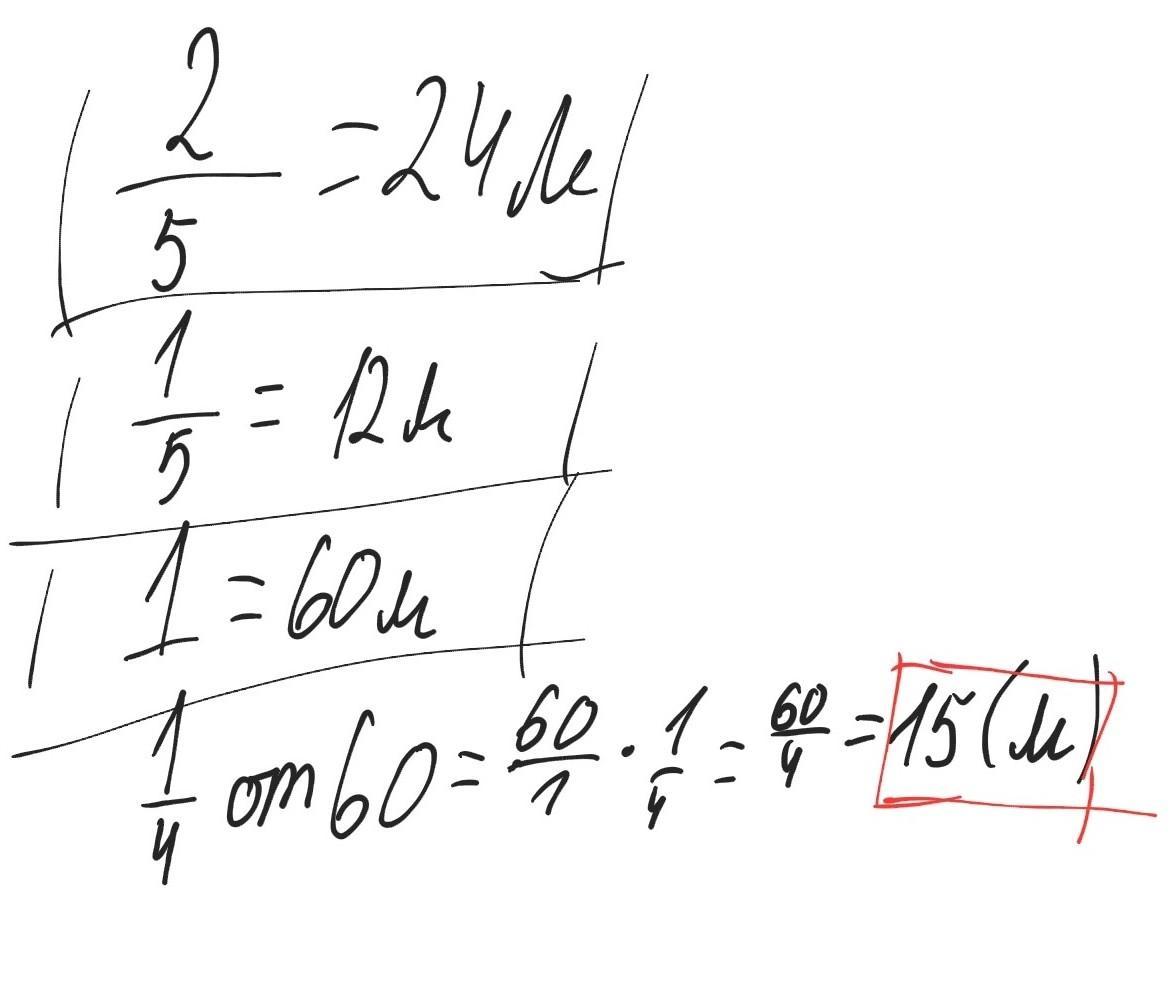 2/5 = 24 м
1/5 = 12 м
1 = 60 м
1/4 от 60 = 60/1 · 1/4 = 60/4 = 15 (м)